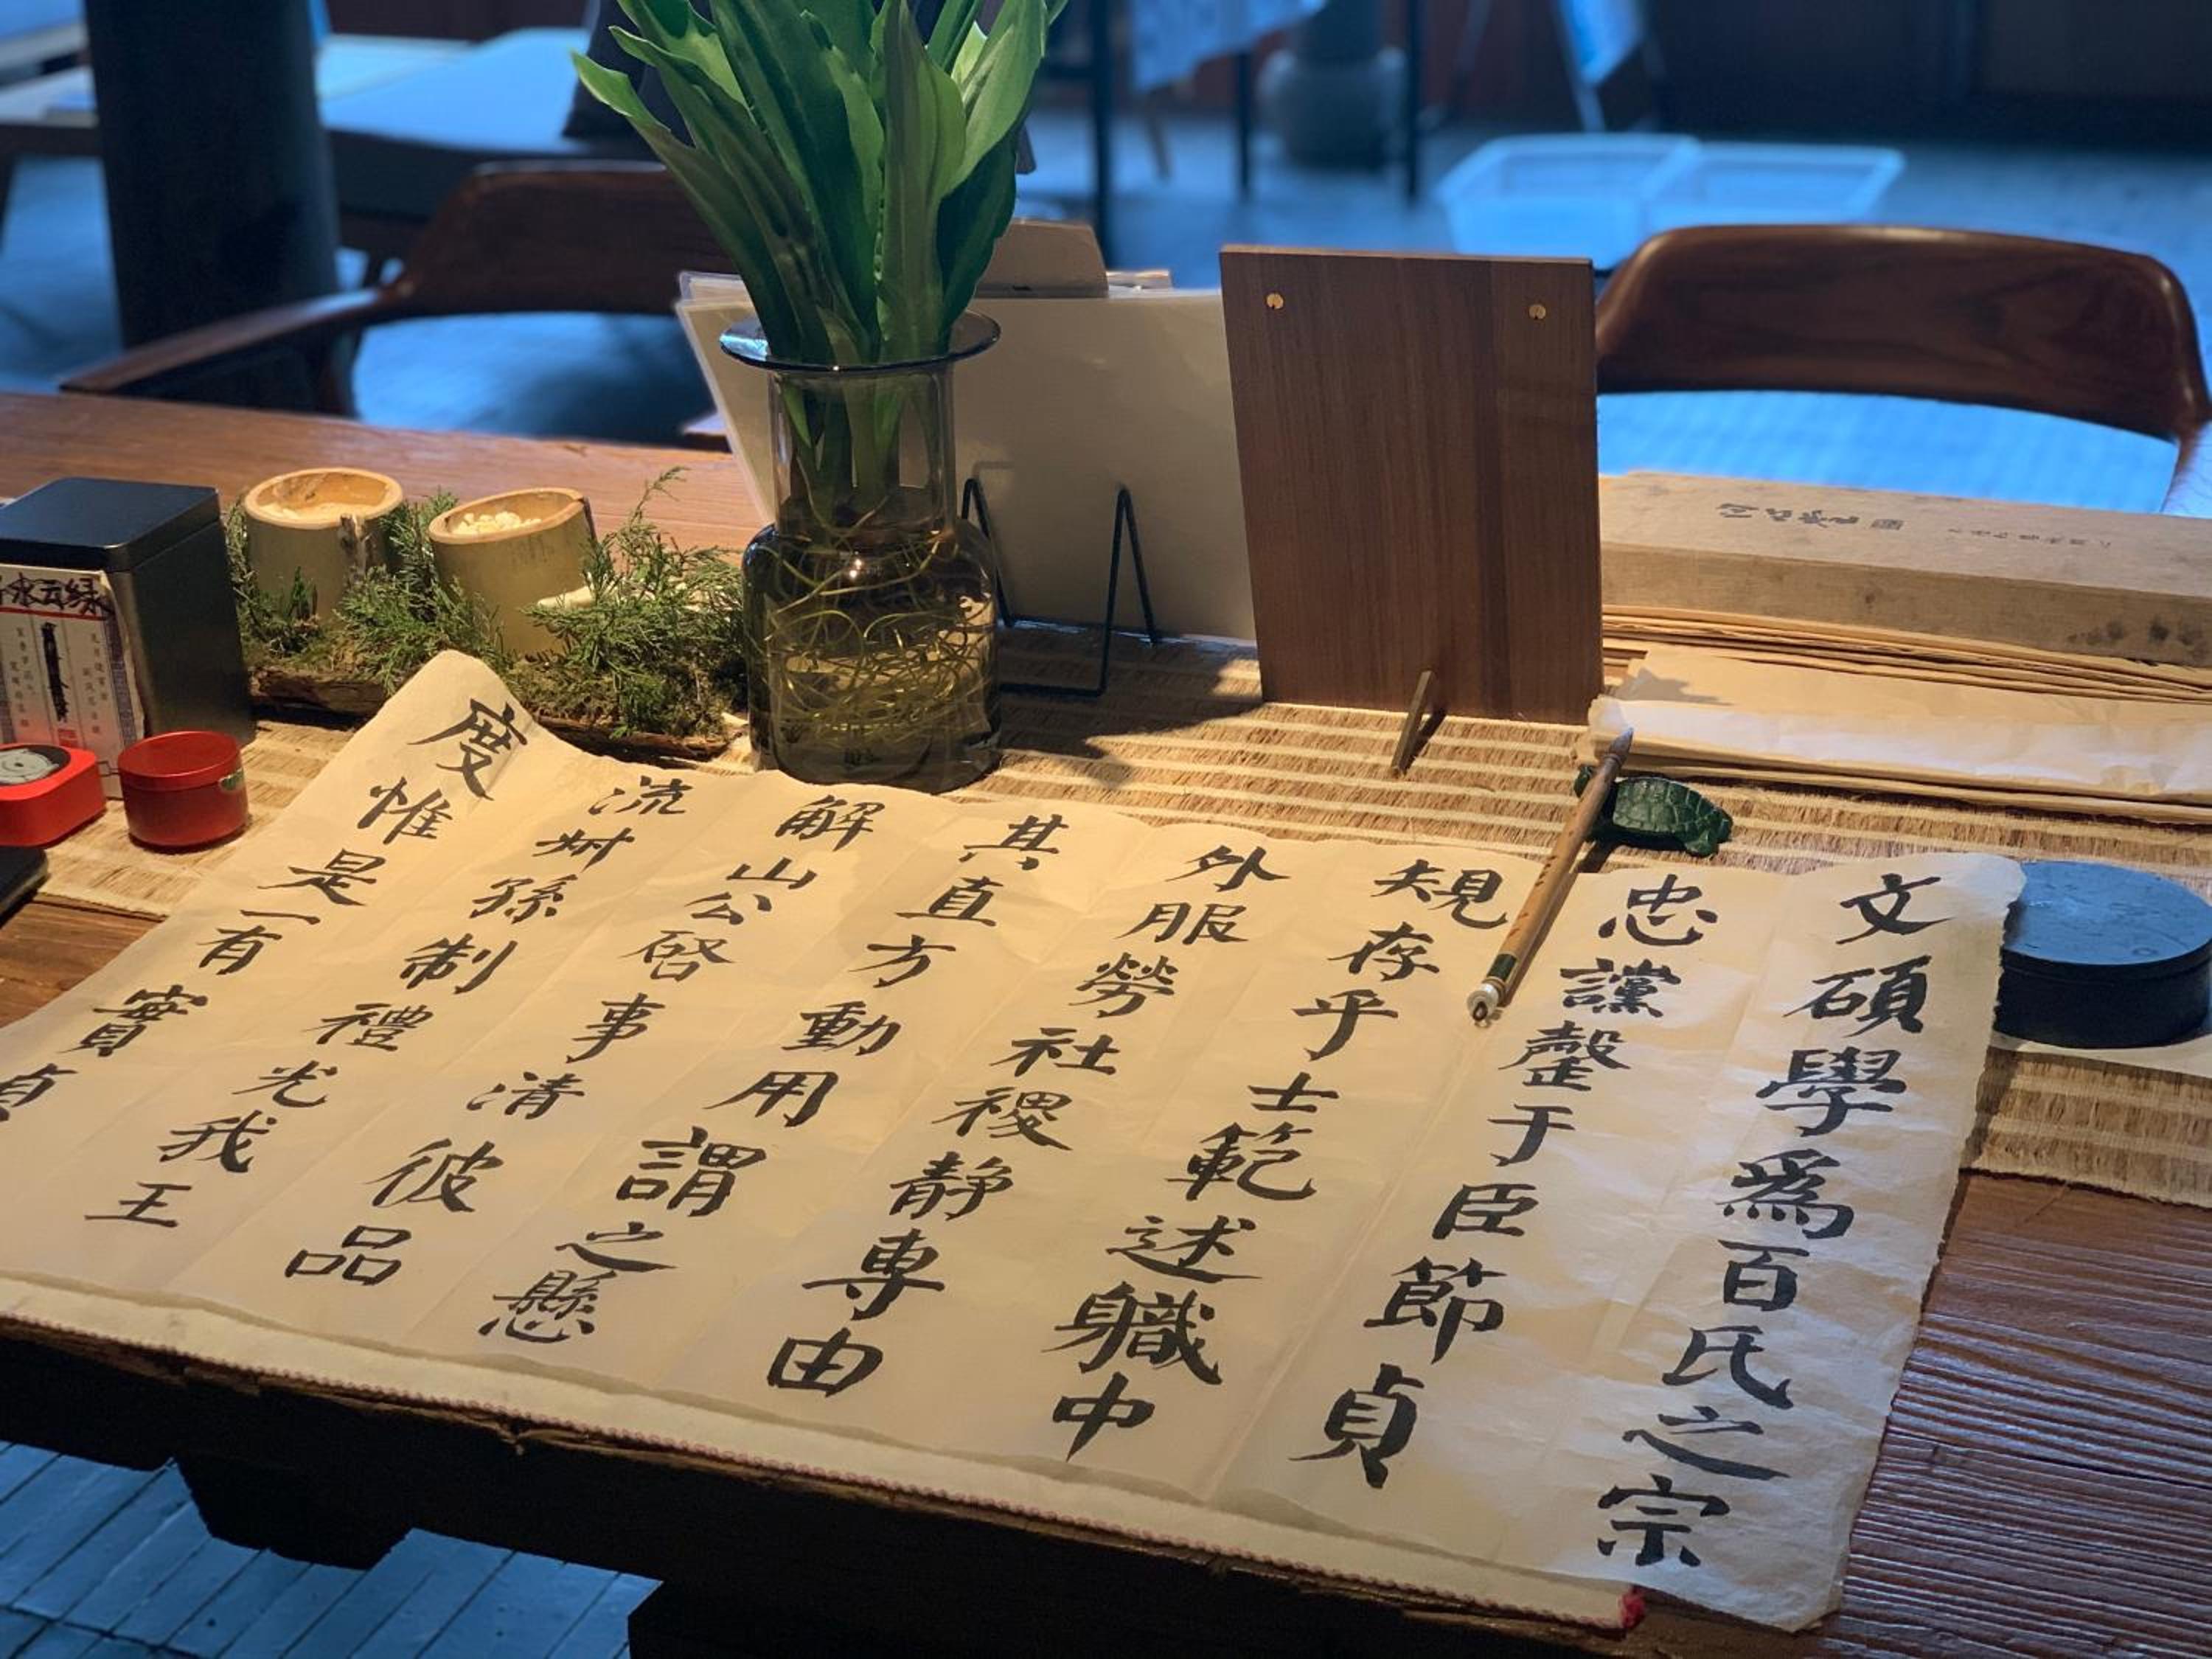 文碩學爲百氏之宗
忠讜罄于臣節貞
規存乎士範述軄中
外服勞社稷静專由
其直方動用謂之懸
解山公啓事清彼品
流叔孫制禮光我王
度惟是一有實貞
水云绿